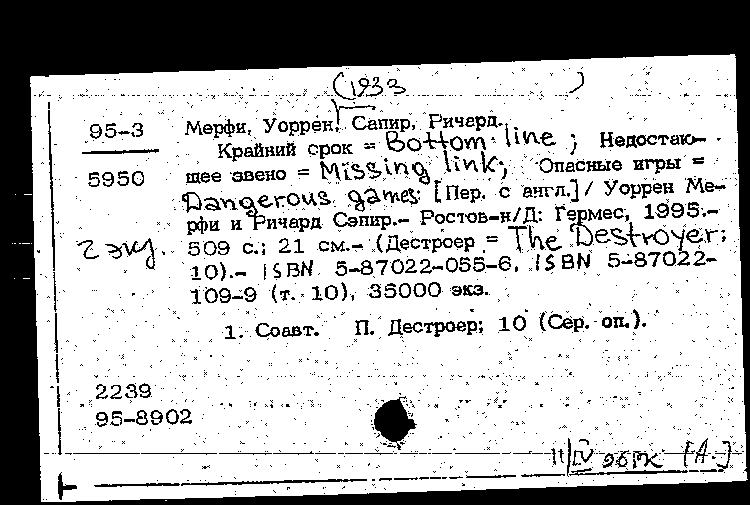 (1933 )
95-3 Мерфи, Уоррен, Сапир, Ричард.
Крайний срок = Bottom line ; Недостаю-
5950 щее звено = Missing link; Опасные игры =
Dangerous games: [Пер. с англ.] / Уоррен Ме-
рфи и Ричард Сэпир.- Ростов-н/Д: Гермес, 1995.-
2 экз. 509 с.; 21 см.- (Дестроер = The Destroyer;
10).- ISBN 5-87022-055-6, ISBN 5-87022-
109-9 (т. 10), 35000 экз.
1. Соавт. П. Дестроер; 10 (Сер. оп.).
2239
95-8902
11/IV [А.]